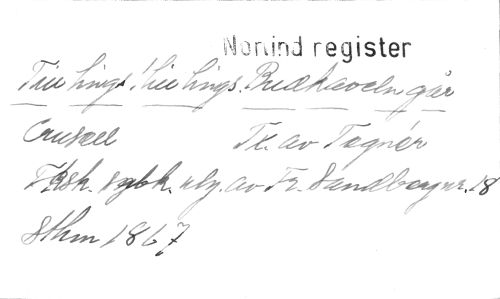 Nomind register
Till tings! Till tings. Budkaveln går
Crusell Tx. av Tegnér
Fksk. sgbk. utg. av Fr. Sandberg nr. 18
Sthm 1867